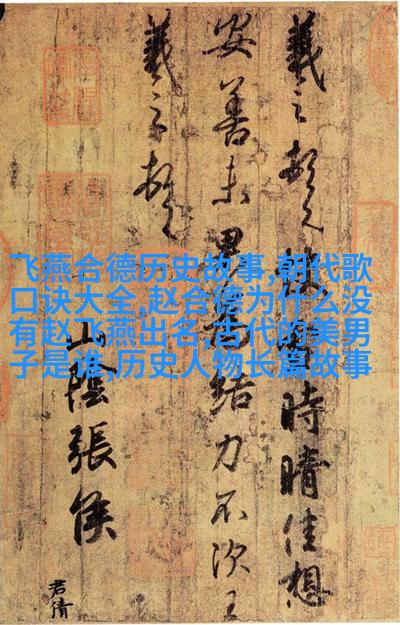 羲之頓首時晴佳想
安善未果為結力不次王
羲之頓首
山陰張侯
君倩
飞燕合德历史故事,朝代歌
口诀大全,赵合德为什么没
有赵飞燕出名,古代的美男
子是谁,历史人物长篇故事